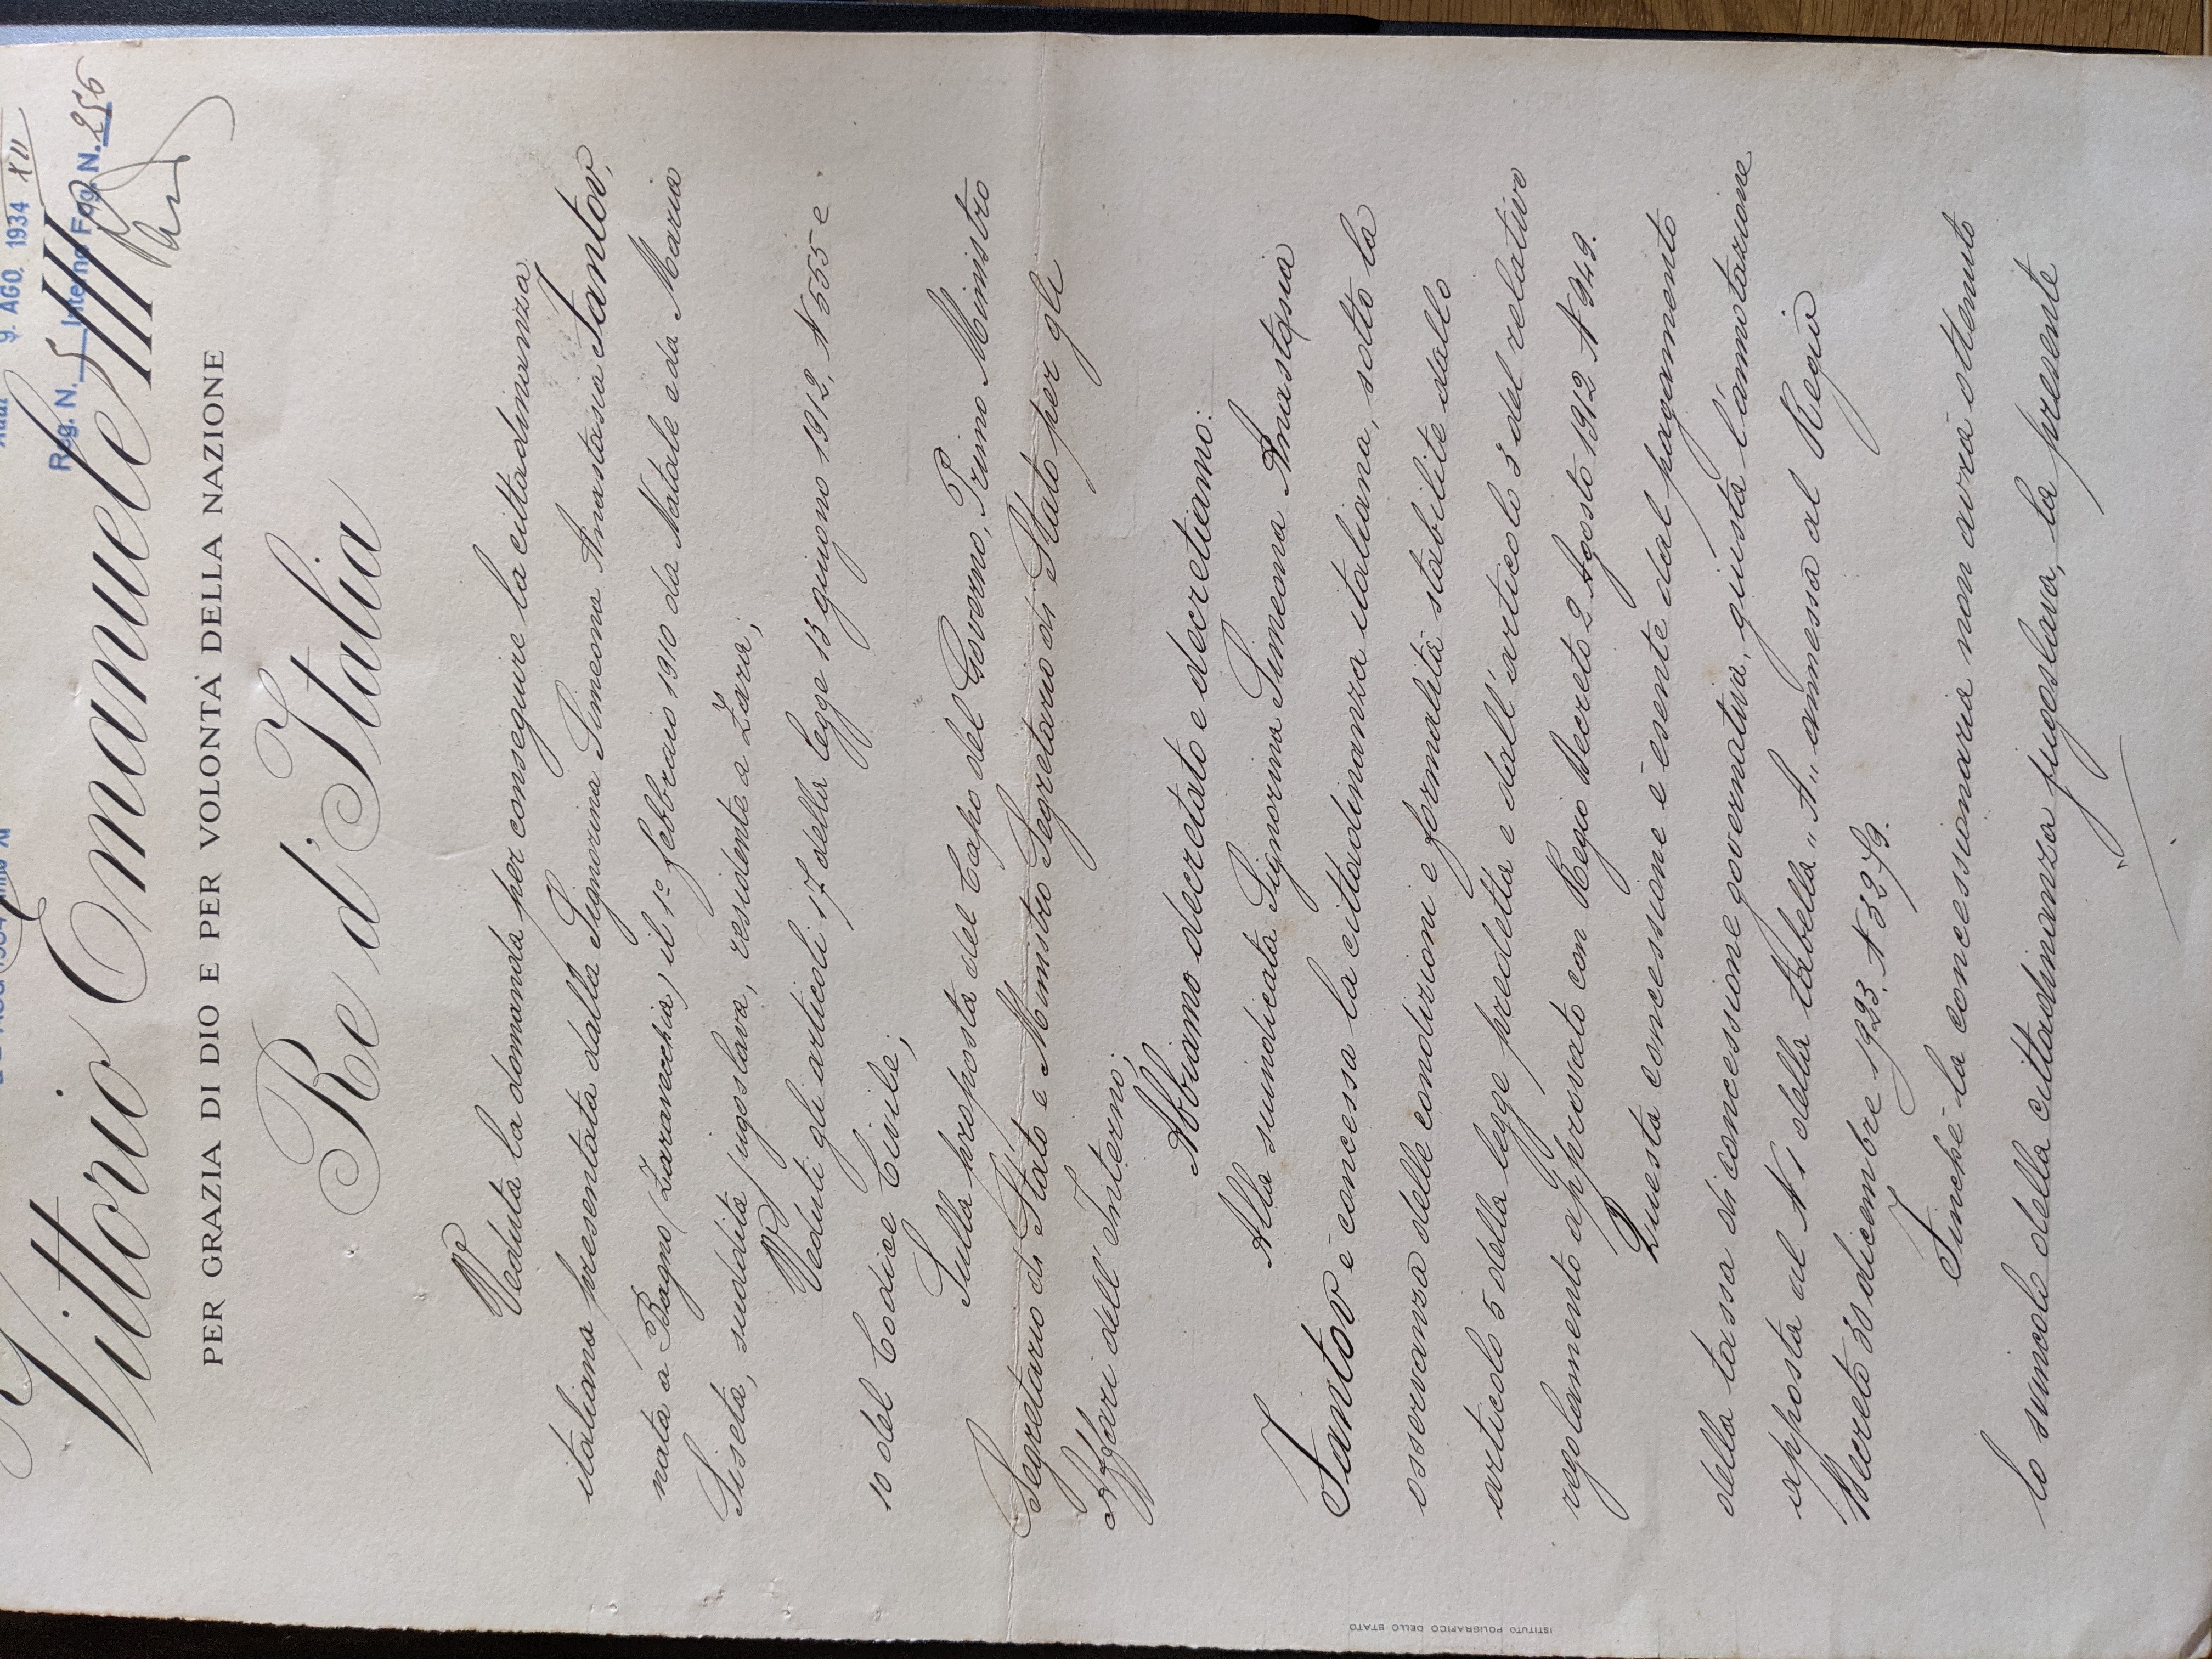 AGO 1934 Anno XI
Addì 9. AGO. 1934 XII
Reg. N. 5 Interno Fog. N. 256
Vittorio Emanuele III
PER GRAZIA DI DIO E PER VOLONTÀ DELLA NAZIONE
Re d'Italia
Veduta la domanda per conseguire la cittadinanza
italiana presentata dalla Signorina Simeona Anastasia Fantov,
nata a Bagno (Zaravecchia) il 1º febbraio 1910 da Natale e da Maria
Siseta, suddita jugoslava, residente a Zara;
Veduti gli articoli 17 della legge 13 giugno 1912, N 555 e
10 del Codice Civile;
Sulla proposta del Capo del Governo, Primo Ministro
Segretario di Stato e Ministro Segretario di Stato per gli
Affari dell' Interno;
Abbiamo decretato e decretiamo:
Alla suindicata Signorina Simeona Anastasia
Fantov è concessa la cittadinanza italiana, sotto la
osservanza delle condizioni e formalità stabilite dallo
articolo 5 della legge predetta e dall' articolo 3 del relativo
regolamento approvato con Regio Decreto 2 Agosto 1912 N 949.
Questa concessione è esente dal pagamento
della tassa di concessione governativa, giusta l'annotazione
apposta al N 1 della tabella "A" annessa al Regio
Decreto 30 dicembre 1923. N 3279.
Finchè la concessionaria non avrà ottenuto
lo svincolo della cittadinanza jugoslava, la presente
ISTITUTO POLIGRAFICO DELLO STATO